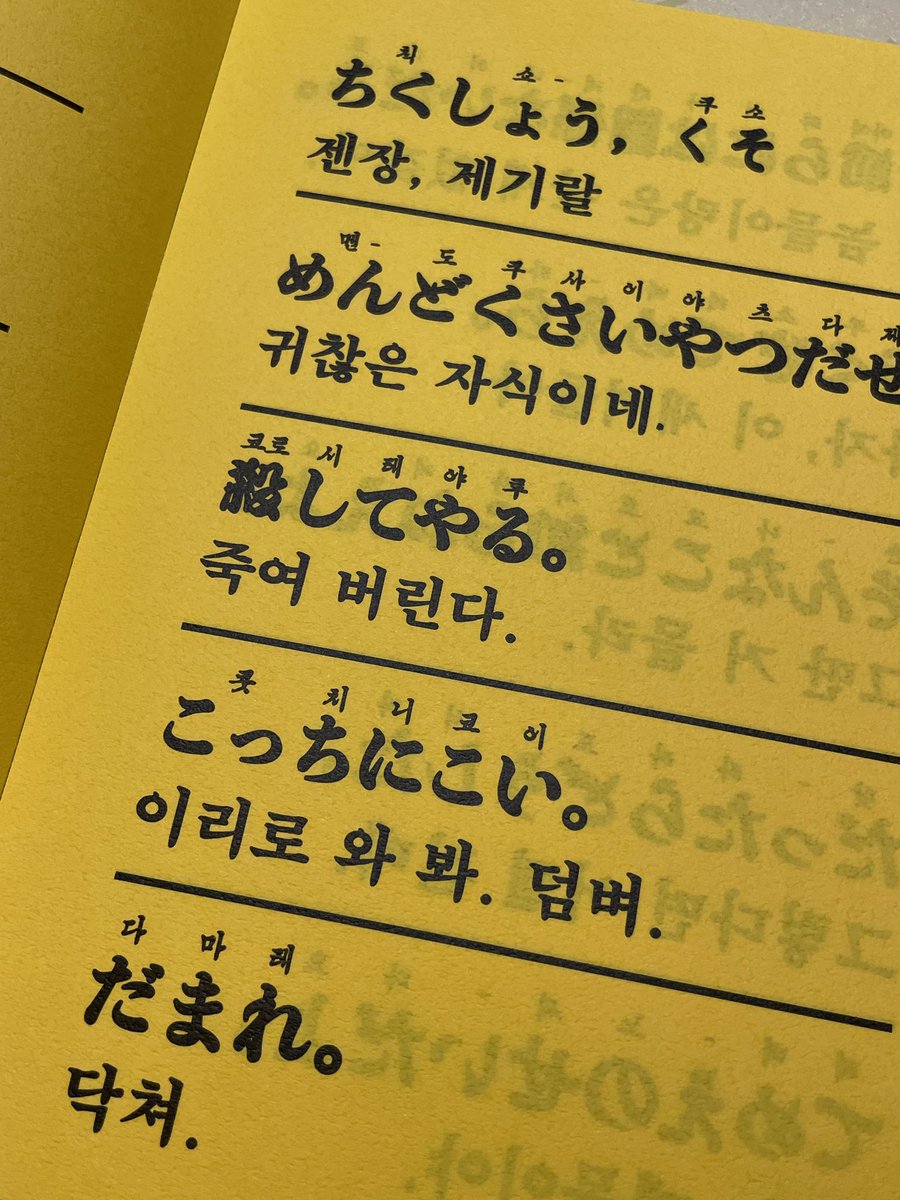 칙 쇼- 쿠 소
ちくしょう, くそ
젠장, 제기랄
멘- 도 쿠 사 이 야 츠 다
めんどくさいやつだぜ
귀찮은 자식이네.
코로 시 테 야 루
殺してやる。
죽여 버린다.
콧 치 니 코 이
こっちにこい。
이리로 와 봐. 덤벼.
다 마 레
だまれ。
닥쳐.